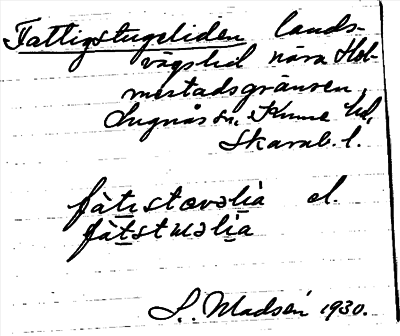 Fattigstugeliden lands-
vägslid nära Hol-
mestadsgränsen,
Lugnås sn, Kinne hd,
Skarab. l.
fàtɩstɷvəlia el.
fàtstuəlia
S. Madsén 1930.